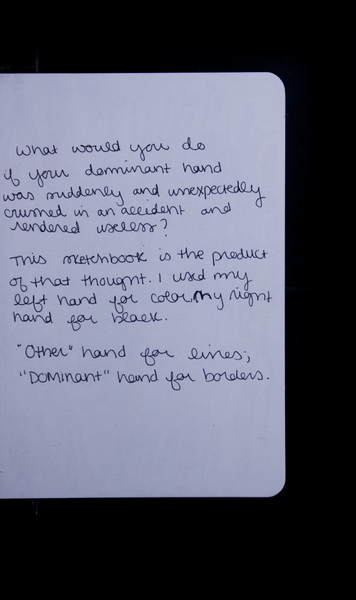 What would you do
if your dominant hand
was suddenly and unexpectedly
crushed in an accident and
rendered useless?
This sketchbook is the product
of that thought. I used my
left hand for color, my right
hand for black.
"Other" hand for lines;
"Dominant" hand for borders.